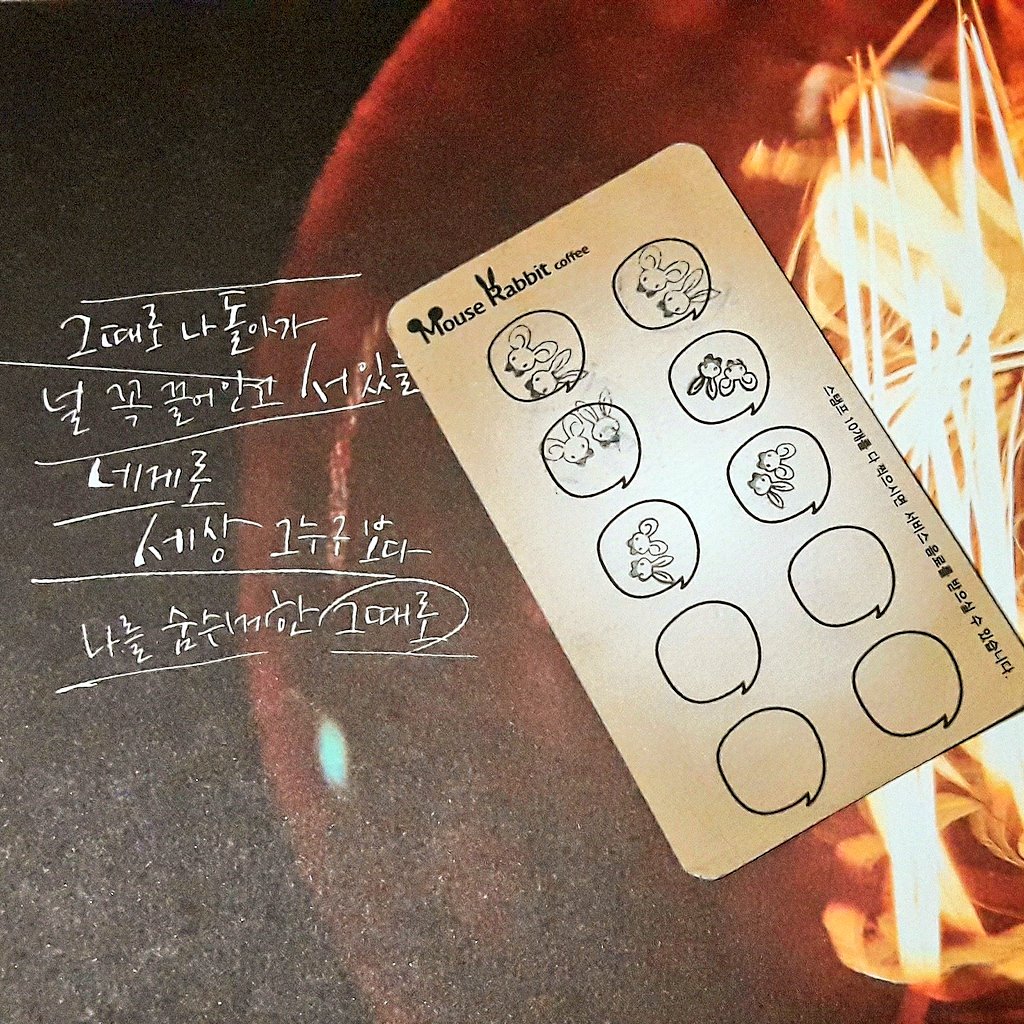 그때로 나 돌아가
널 꼭 끌어안고 서 있을
네게로
세상 그 누구보다
나를 숨쉬게 한 그때로
Mouse Rabbit coffee
스탬프 10개를 다 찍으시면 서비스 음료를 받으실 수 있습니다.